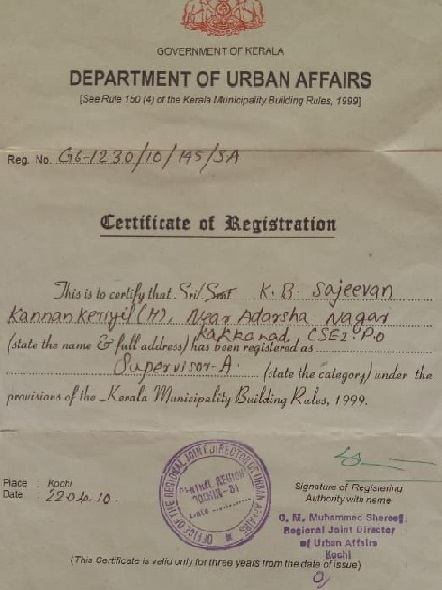 GOVERNMENT OF KERALA
DEPARTMENT OF URBAN AFFAIRS
[See Rule 150 (4) of the Kerala Municipality Building Rules, 1999]
Reg. No. G6-1230/10/145/SA
Certificate of Registration
This is to certify that Sri/Smt K. B. Sajeevan
Kannankeriyil (H), Near Adarsha Nagar
Kakkanad, CSEZ. P.O
(state the name & full address) has been registered as
Supervisor-A. (state the category) under the
provisions of the Kerala Municipality Building Rules, 1999.
OFFICE OF THE REGIONAL JOINT DIRECTOR OF URBAN AFFAIRS
CENTRAL REGION
Place : Kochi
Date : 22.04.10.
Signature of Registering
Authority with name
Regional Joint Director
of Urban Affairs
Kochi
(This Certificate is valid only for three years from the date of issue)